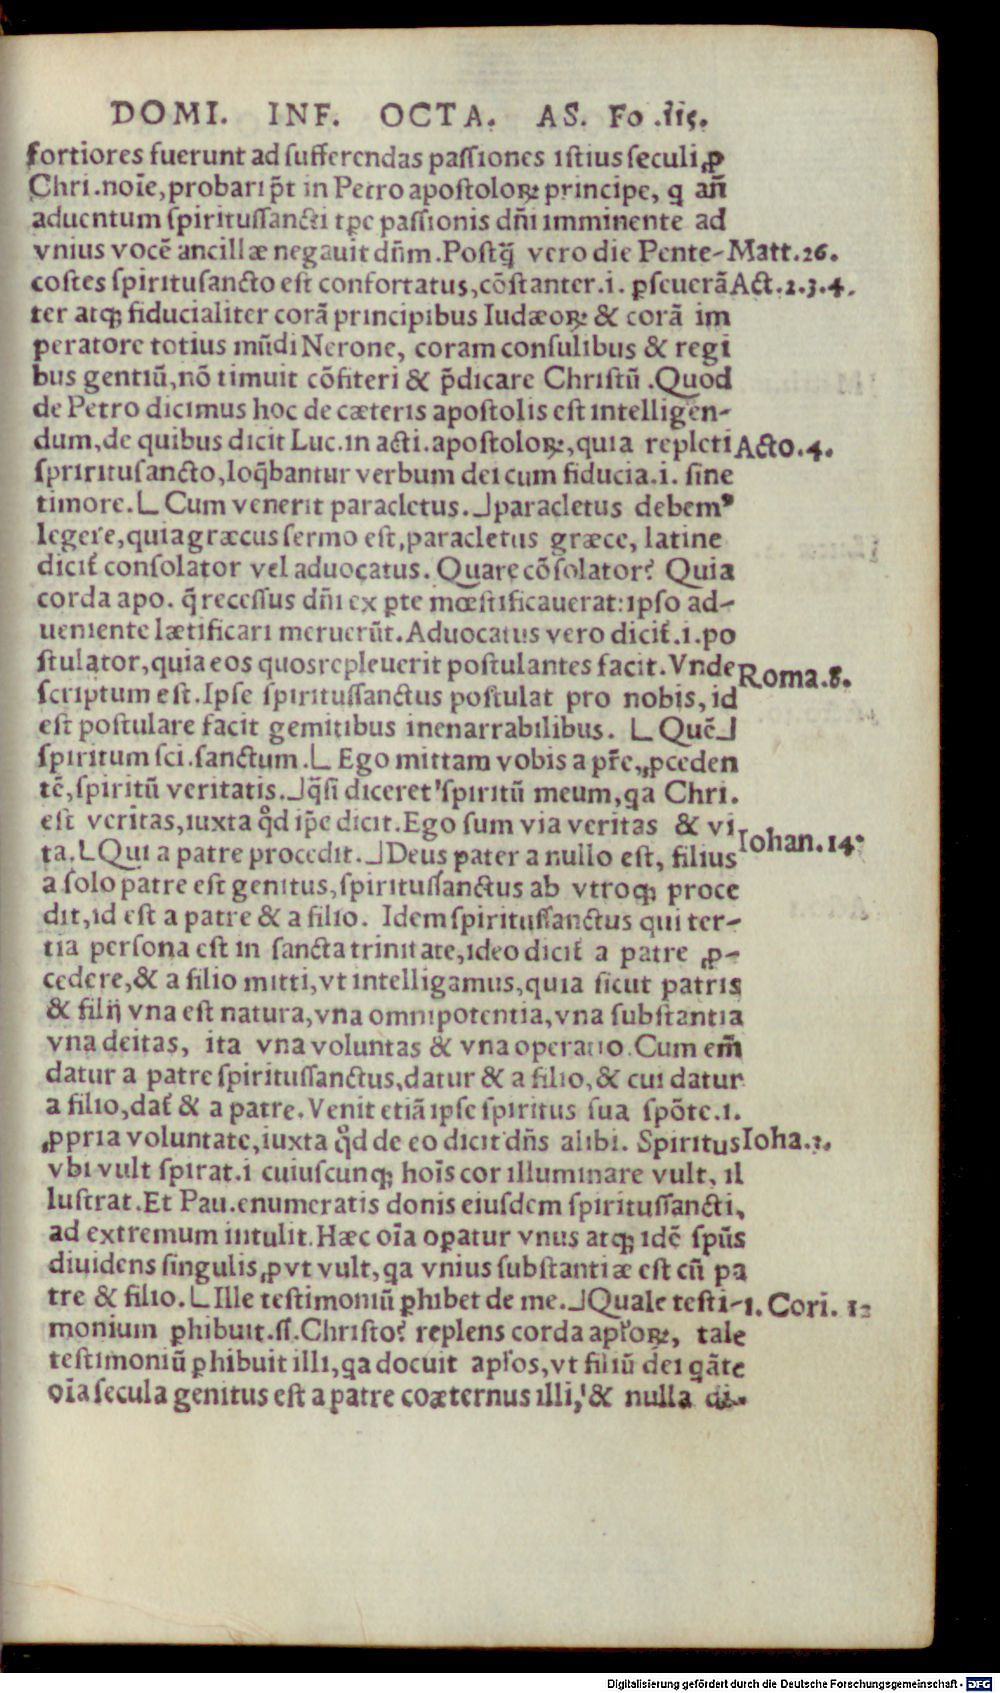 DOMI. INF. OCTA. AS. Fo .iiij.
fortiores fuerunt ad sufferendas passiones istius seculi,ꝓ
Chri.noīe,probari p̄t in Petro apostoloꝝ principe, q an̄
aduentum spiritussancti tꝑe passionis dn̄i imminente ad
vnius vocē ancillæ negauit dn̄m.Postq̄ vero die Pente- Matt.26.
costes spiritusancto est confortatus,cōstanter.i. ꝑseuerā Act.2.3.4.
ter atqꝫ fiducialiter corā principibus Iudæoꝝ & corā im
peratore totius mūdi Nerone, coram consulibus & regi
bus gentiū,nō timuit cōfiteri & p̄dicare Christū .Quod
de Petro dicimus hoc de cæteris apostolis est intelligen-
dum,de quibus dicit Luc.in acti.apostoloꝝ,quia repleti Acto.4.
spriritusancto,loq̄bantur verbum dei cum fiducia.i. sine
timore.⌊Cum venerit paracletus.⌋paracletus debemꝰ
legere,quia græcus sermo est,paracletus græce, latine
dicit̄ consolator vel aduocatus. Quare cōsolator? Quia
corda apo. q̄ recessus dn̄i ex ꝑte mœstificauerat:ipso ad-
ueniente lætificari meruerūt.Aduocatus vero dicit̄.i.po
stulator,quia eos quos repleuerit postulantes facit. Vnde Roma.8.
scriptum est.Ipse spiritussanctus postulat pro nobis,id
est postulare facit gemitibus inenarrabilibus. ⌊Quē⌋
spiritum sci.sanctum.⌊Ego mittam vobis a pr̄e,ꝓceden
tē,spiritū veritatis.⌋q̄si diceret'spiritū meum,qa Chri.
est veritas,iuxta qd̄ ip̄e dicit.Ego sum via veritas & vi Iohan.14.
ta.⌊Qui a patre procedit.⌋Deus pater a nullo est, filius
a solo patre est genitus,spiritussanctus ab vtroqꝫ proce
dit,id est a patre & a filio. Idem spiritussanctus qui ter-
tia persona est in sancta trinitate,ideo dicit̄ a patre ꝓ-
cedere,& a filio mitti,vt intelligamus,quia sicut patris
& filij vna est natura,vna omnipotentia,vna substantia
vna deitas, ita vna voluntas & vna operatio.Cum em̄
datur a patre spiritussanctus,datur & a filio,& cui datur
a filio,dat̄ & a patre.Venit etiā ipse spiritus sua spōte.i.
ꝓpria voluntate,iuxta qd̄ de eo dicit dn̄s alibi. Spiritus Ioha.3.
vbi vult spirat.i cuiuscunqꝫ hoīs cor illuminare vult, il
lustrat.Et Pau.enumeratis donis eiusdem spiritussancti,
ad extremum intulit.Hæc oīa oꝑatur vnus atqꝫ idē spūs
diuidens singulis,ꝓvt vult,qa vnius substantiæ est cū pa
tre & filio.⌊Ille testimoniū ꝑhibet de me.⌋Quale testi- 1. Cori. 12
monium ꝑhibuit.sſ.Christo? replens corda apl̄oꝝ, tale
testimoniū ꝑhibuit illi,qa docuit apl̄os,vt filiū dei qāte
oīa secula genitus est a patre coæternus illi,& nulla di-
Digitalisierung gefördert durch die Deutsche Forschungsgemeinschaft - DFG